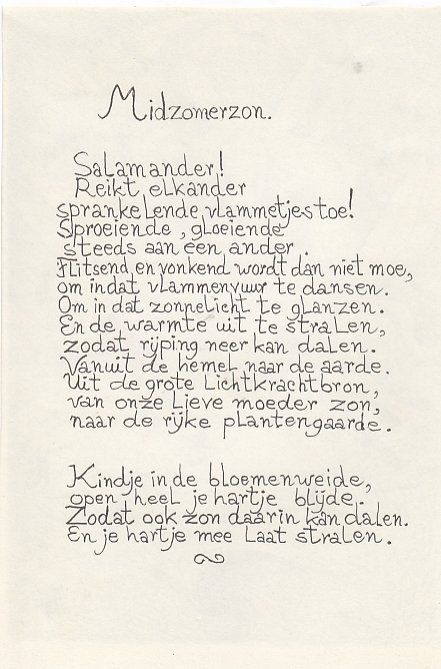 Midzomerzon.
Salamander!
Reikt elkander
sprankelende vlammetjes toe!
Sproeiende, gloeiende
steeds aan een ander.
Flitsend en vonkend wordt dan niet moe,
om in dat vlammenvuur te dansen.
Om in dat zonnelicht te glanzen.
En de warmte uit te stralen,
zodat rijping neer kan dalen.
Vanuit de hemel naar de aarde.
Uit de grote Lichtkrachtbron,
van onze Lieve moeder zon,
naar de rijke plantengaarde.
Kindje in de bloemenweide,
open heel je hartje blijde.
Zodat ook zon daarin kan dalen.
En je hartje mee Laat stralen.